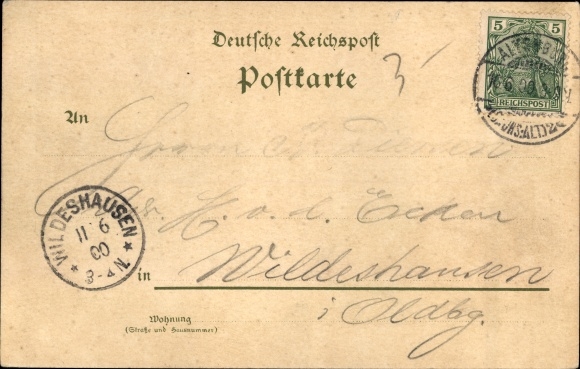 Deutsche Reichspost
Postkarte
5 5
REICHSPOST
ALTENBURG
(SACHS.ALT.)
An
H. v. d. Ecken
WILDESHAUSEN
11 6
00
3-4N.
in Wildeshausen
i Oldbg.
Wohnung
(Straße und Hausnummer)